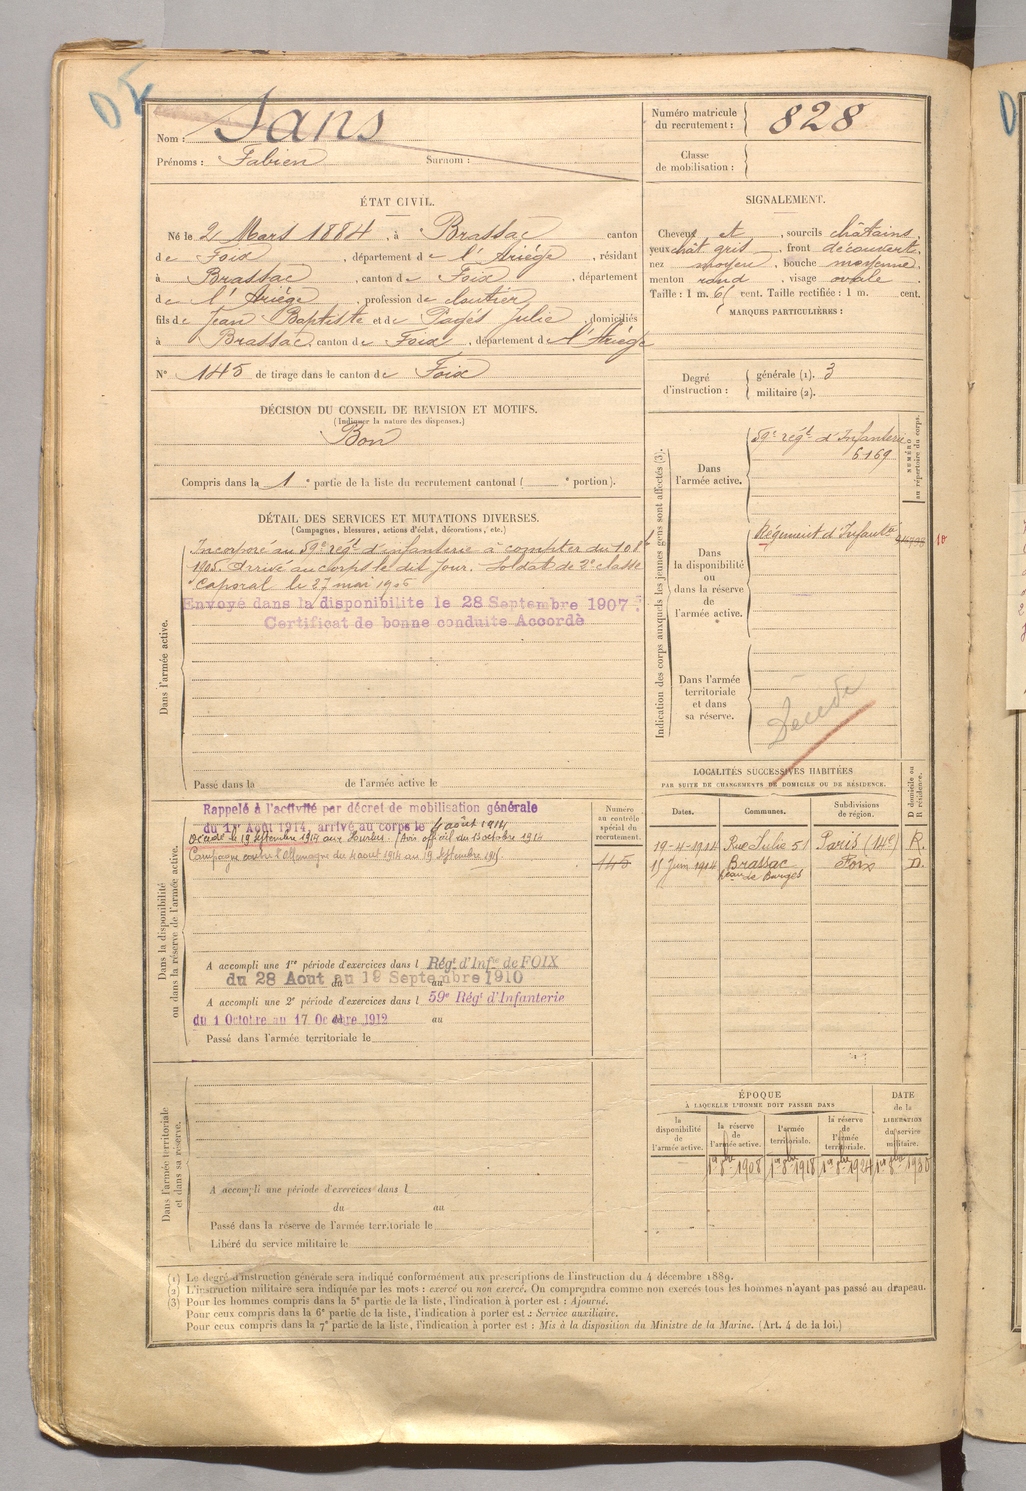 Nom : Sans
Prénoms : Fabien Surnom :
Numéro matricule du recrutement : 828
Classe de mobilisation :
ÉTAT CIVIL.
Né le 2 Mars 1884, à Brassac canton
de Foix, département de l'Ariège, résidant
à Brassac, canton de Foix, département
de l'Ariège, profession de cloutier,
fils de Jean Baptiste et de Pagés Julie, domiciliés
à Brassac, canton de Foix, département de l'Ariège
N° 145 de tirage dans le canton de Foix
SIGNALEMENT.
Cheveux et, sourcils châtains,
yeux chât gris, front découvert,
nez moyen, bouche moyenne,
menton rond, visage ovale
Taille : 1 m. 61 cent. Taille rectifiée : 1 m. cent.
MARQUES PARTICULIÈRES :
Degré d'instruction : générale (1). 3
militaire (2).
DÉCISION DU CONSEIL DE REVISION ET MOTIFS.
(Indiquer la nature des dispenses.)
Bon
Compris dans la 1e partie de la liste du recrutement cantonal ( e portion).
DÉTAIL DES SERVICES ET MUTATIONS DIVERSES.
(Campagnes, blessures, actions d'éclat, décorations, etc.)
Dans l'armée active.
Incorporé au 59e régt d'infanterie à compter du
1905 Arrivé au corps le dit jour. Soldat de 2e classe
Caporal le 27 mai
Envoyé dans la disponibilite le 28 Septembre 1907
Certificat de bonne conduite Accordè
Passé dans la de l'armée active le
Indication des corps auxquels les jeunes gens sont affectés (3).
NUMÉRO au répertoire du corps.
Dans l'armée active.
59e régt d'Infanterie
6169
Dans la disponibilité ou dans la réserve de l'armée active.
Régiment d'Infantie
Dans l'armée territoriale et dans sa réserve.
Décédé
Dans la disponibilité ou dans la réserve de l'armée active.
Rappelé à l'activité par décret de mobilisation générale
du 1er Août 1914, arrivé au corps le 4 août 1914
Décédé le 19 septembre 1914 aux Hurlus. (Avis officiel du 13 octobre 1914
Campagne contre l'Allemagne du 4 aout 1914 au 19 Septembre
Numéro au contrôle spécial du recrutement.
145
A accompli une 1re période d'exercices dans l Régt d'Infie de FOIX
du 28 Aout au 19 Septembre 1910
A accompli une 2e période d'exercices dans l 59e Régt d'Infanterie
du 1 Octobre au 17 Octobre 1912 au
Passé dans l'armée territoriale le
LOCALITÉS SUCCESSIVES HABITÉES
PAR SUITE DE CHANGEMENTS DE DOMICILE OU DE RÉSIDENCE.
D domicile ou R résidence.
Dates. Communes. Subdivisions de région.
19-4-1914 Rue Julie 51 Paris (14e) R.
15 Juin 1914 Brassac Foix D.
Dans l'armée territoriale et dans sa réserve.
A accompli une période d'exercices dans l
du au
Passé dans la réserve de l'armée territoriale le
Libéré du service militaire le
ÉPOQUE
À LAQUELLE L'HOMME DOIT PASSER DANS
DATE de la LIBÉRATION du service militaire.
la disponibilité de l'armée active.
la réserve de l'armée active.
l'armée territoriale.
la réserve de l'armée territoriale.
1er 8bre 1908 1er 8bre 1918 1er 8bre 1924 1er 8bre 1930
(1) Le degré d'instruction générale sera indiqué conformément aux prescriptions de l'instruction du 4 décembre 1889.
(2) L'instruction militaire sera indiquée par les mots : exercé ou non exercé. On comprendra comme non exercés tous les hommes n'ayant pas passé au drapeau.
(3) Pour les hommes compris dans la 5e partie de la liste, l'indication à porter est : Ajourné.
Pour ceux compris dans la 6e partie de la liste, l'indication à porter est : Service auxiliaire.
Pour ceux compris dans la 7e partie de la liste, l'indication à porter est : Mis à la disposition du Ministre de la Marine. (Art. 4 de la loi.)